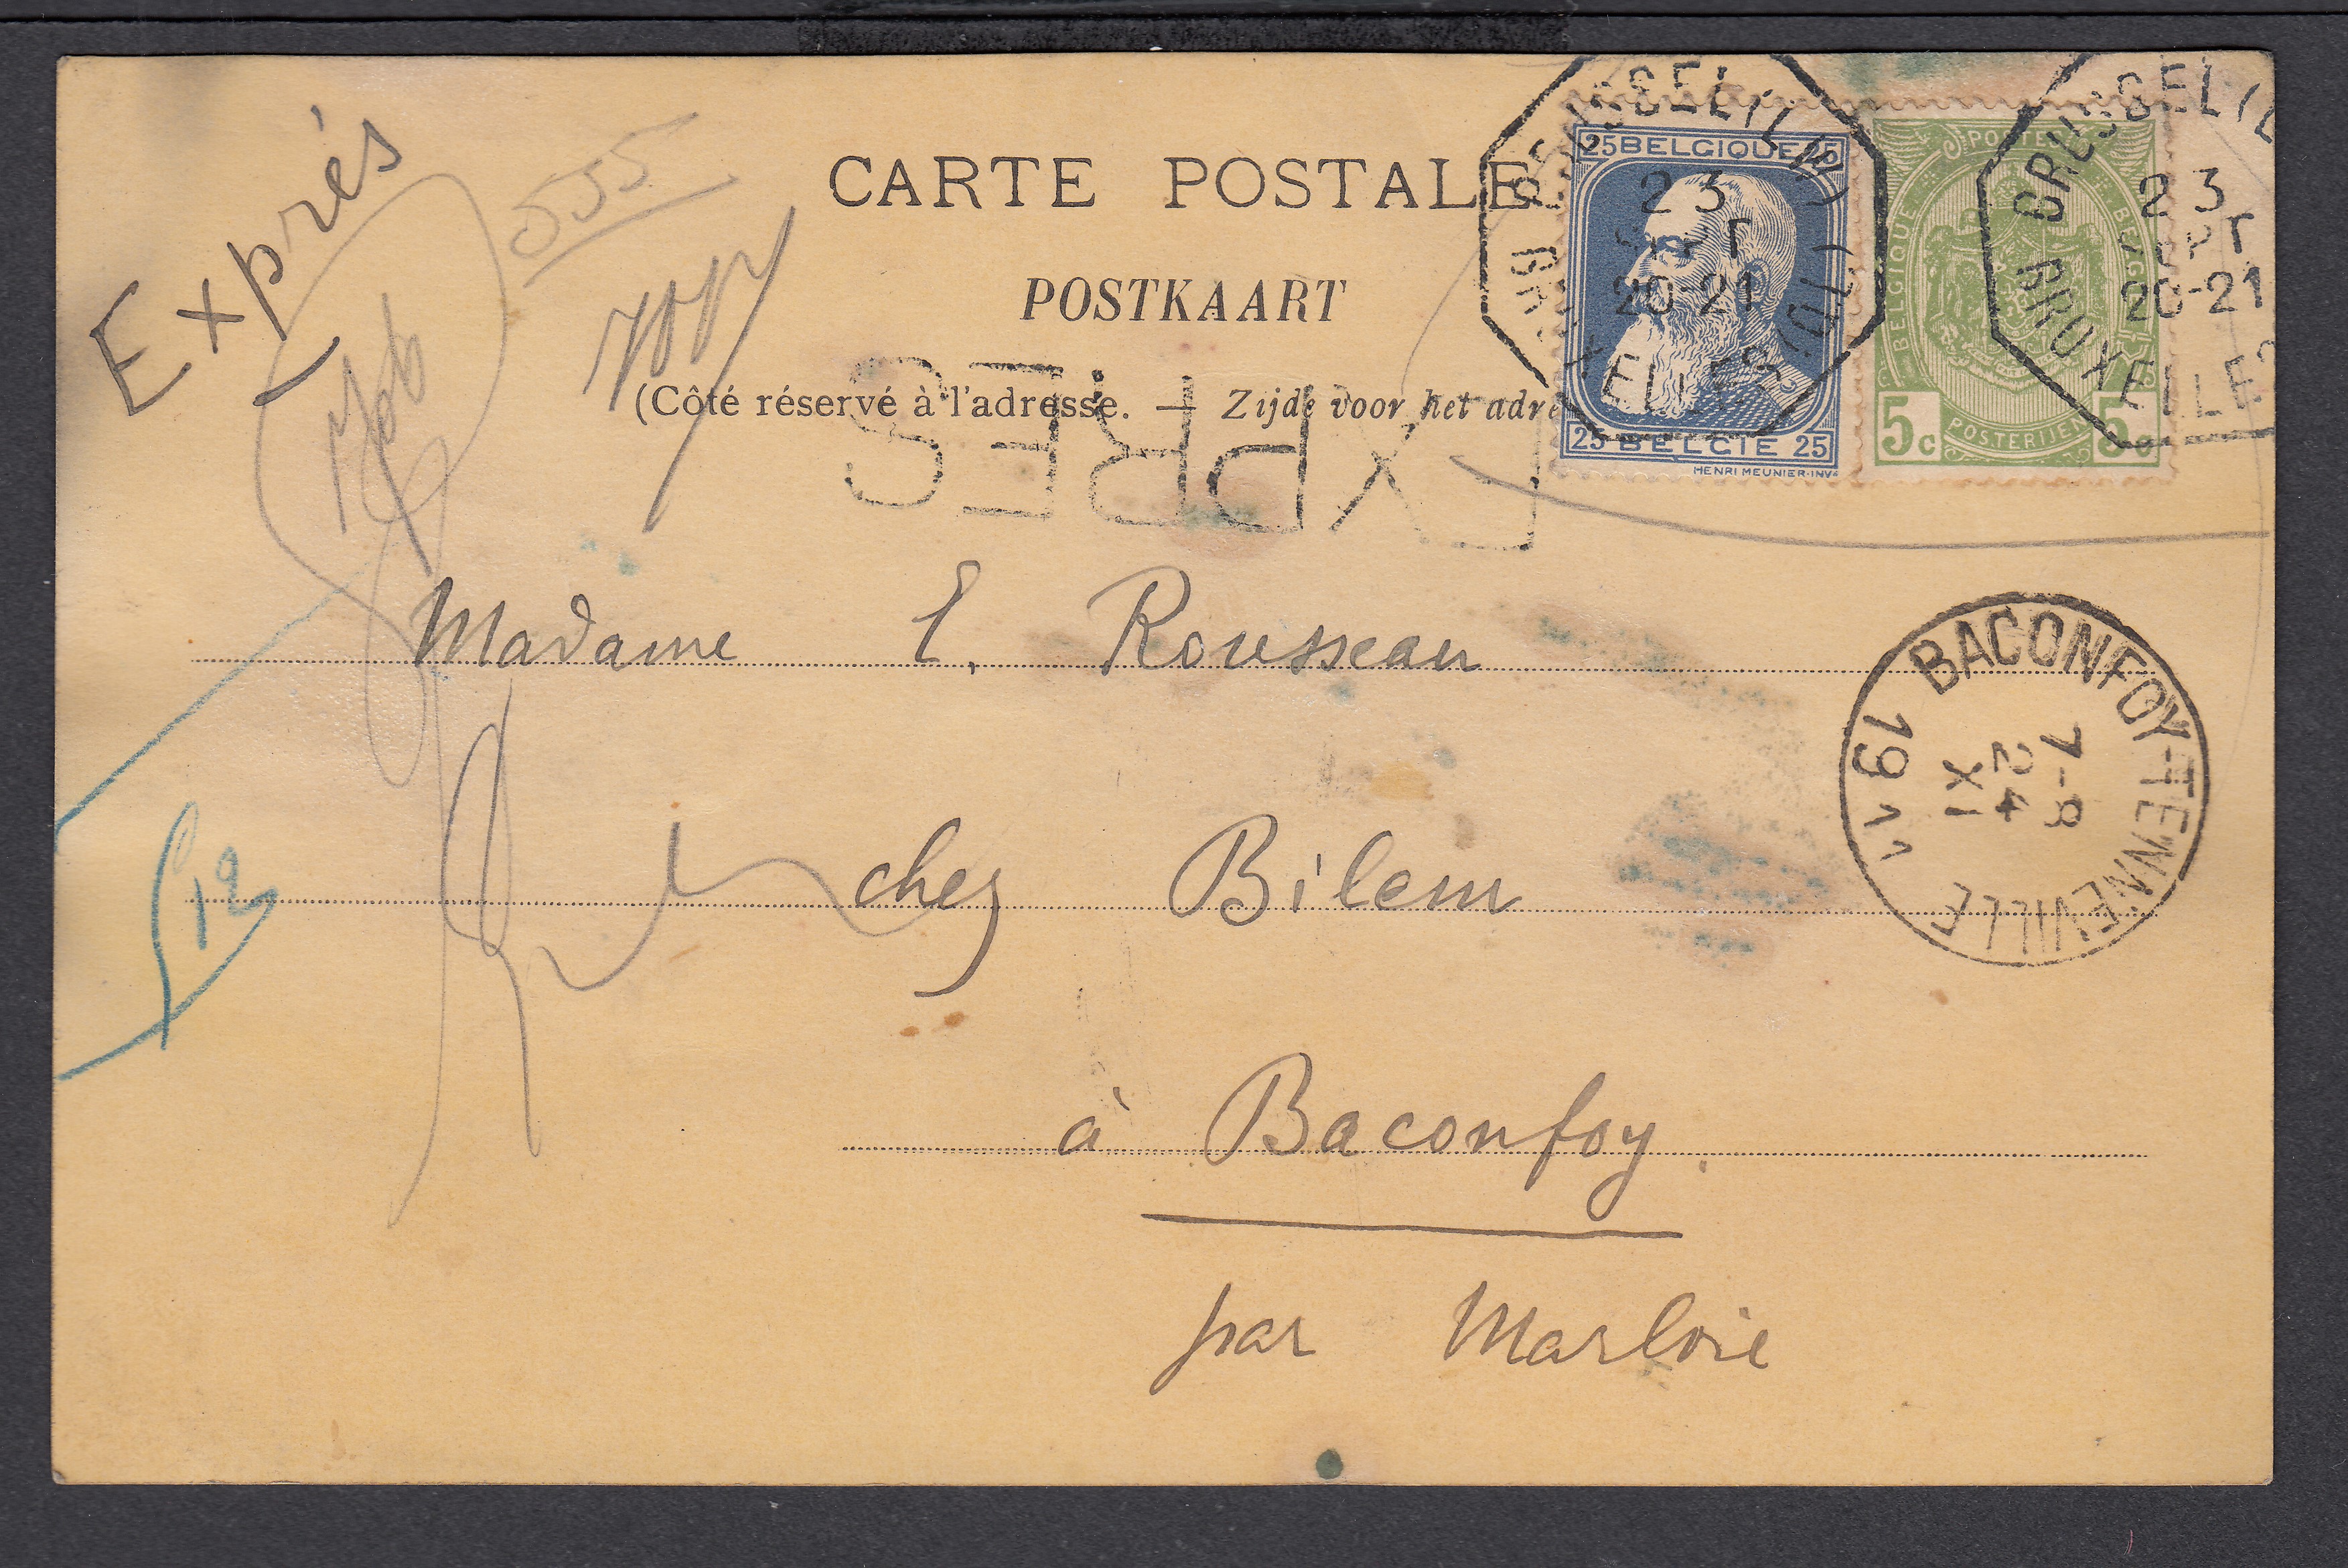 Exprés
555
CARTE POSTALE
POSTKAART
(Côté réservé à l'adresse. — Zijde voor het adre
EXPRES
25 BELGIQUE 25
25 BELGIE 25
HENRI MEUNIER·INV
POSTES
BELGIQUE
BELGIË
POSTERIJEN
5c 5c
BRUSSEL
23
SEPT
20-21
BRUXELLES
BRUSSEL
23
SEPT
20-21
BRUXELLES
Madame E. Rousseau
BACONFOY-TENNEVILLE
7-8
24
XI
1911
12
chez Bilem
à Baconfoy.
par Marloie